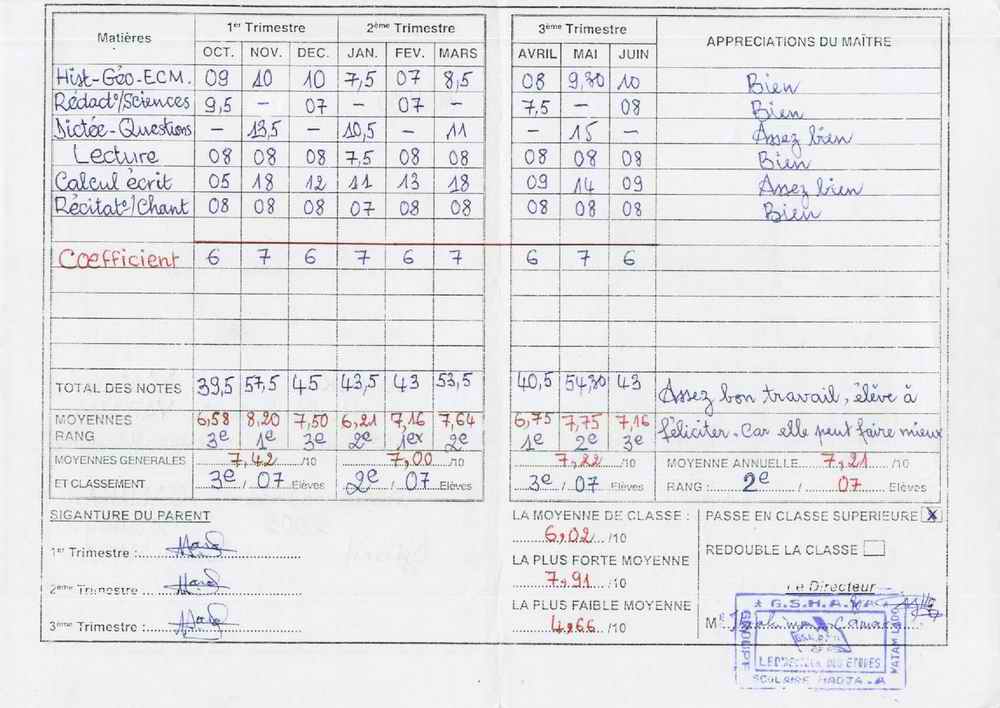 Matières 1er Trimestre 2ème Trimestre 3ème Trimestre APPRECIATIONS DU MAÎTRE
OCT. NOV. DEC. JAN. FEV. MARS AVRIL MAI JUIN
Hist-Géo-ECM. 09 10 10 7,5 07 8,5 08 9,30 10 Bien
Rédact°/Sciences 9,5 - 07 - 07 - 7,5 - 08 Bien
Dictée-Questions - 13,5 - 10,5 - 11 - 15 - Assez bien
Lecture 08 08 08 7,5 08 08 08 08 08 Bien
Calcul écrit 05 18 12 11 13 18 09 14 09 Assez bien
Récitat°/Chant 08 08 08 07 08 08 08 08 08 Bien
Coefficient 6 7 6 7 6 7 6 7 6
TOTAL DES NOTES 39,5 57,5 45 43,5 43 53,5 40,5 54,30 43 Assez bon travail, élève à
MOYENNES 6,58 8,20 7,50 6,21 7,16 7,64 6,75 7,75 7,16 féliciter. Car elle peut faire mieux
RANG 3e 1e 3e 2e 1ex 2e 1e 2e 3e
MOYENNES GENERALES 7,42 /10 7,00 /10 7,22 /10 MOYENNE ANNUELLE 7,21 /10
ET CLASSEMENT 3e / 07 Elèves 2e / 07 Elèves 3e / 07 Elèves RANG : 2e / 07 Elèves
SIGANTURE DU PARENT
1er Trimestre :
2ème Trimestre :
3ème Trimestre :
LA MOYENNE DE CLASSE :
6,02 /10
LA PLUS FORTE MOYENNE
7,91 /10
LA PLUS FAIBLE MOYENNE
4,66 /10
PASSE EN CLASSE SUPERIEURE X
REDOUBLE LA CLASSE
Le Directeur
M Camara
G.S.H.A.
GROUPE
LE DIRECTEUR DES ETUDES
SCOLAIRE HADJA